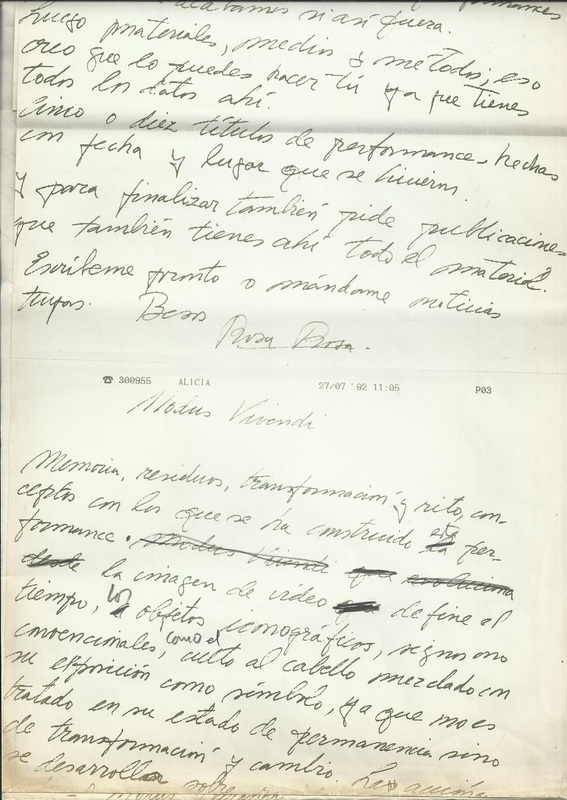 si así fuera.
Luego materiales, medios o métodos; eso
creo que lo puedes hacer tú ya que tienes
todos los datos ahí.
Cinco o diez títulos de performances hechas
con fecha y lugar que se hicieron.
y para finalizar también pide publicaciones
que también tienes ahí todo el material.
Escríbeme pronto o mándame noticias
tuyas. Besos
Rosa Rosa.
☎ 300955 ALICIA 27/07 '92 11:05 P03
Modus Vivendi
Memoria, residuos, transformación y rito, con-
ceptos con los que se ha construido esta per-
formance. Modus Vivendi que evoluciona
desde la imagen de vídeo define el
tiempo, los objetos iconográficos, signos no
convencionales, como el culto al cabello mezclado con
su exposición como símbolo, ya que no es
tratado en su estado de permanencia sino
de transformación y cambio. La acción
se desarrolla sobre